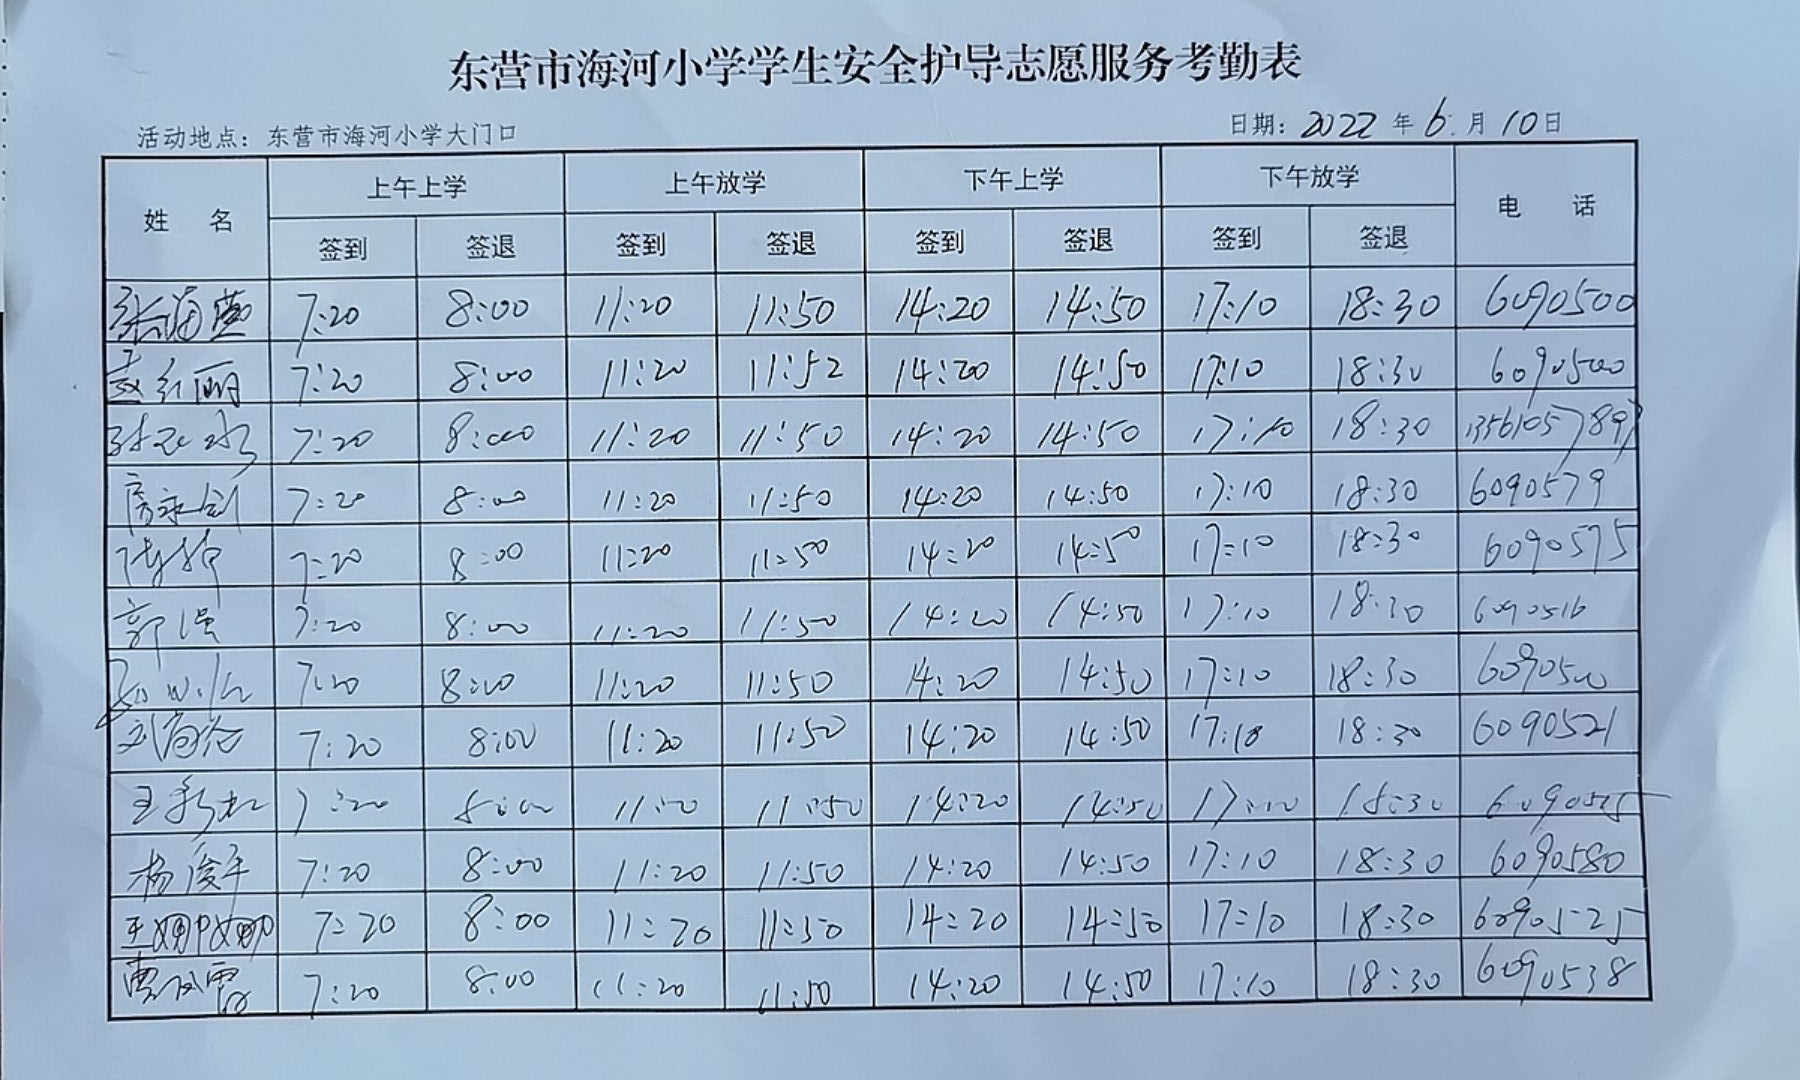 东营市海河小学学生安全护导志愿服务考勤表
活动地点：东营市海河小学大门口 日期：2022年6月10日
姓 名 上午上学 上午放学 下午上学 下午放学 电 话
签到 签退 签到 签退 签到 签退 签到 签退
张海燕 7:20 8:00 11:20 11:50 14:20 14:50 17:10 18:30 6090500
孟红丽 7:20 8:00 11:20 11:52 14:20 14:50 17:10 18:30 6090500
7:20 8:00 11:20 11:50 14:20 14:50 17:10 18:30 13561057897
房永剑 7:20 8:00 11:20 11:50 14:20 14:50 17:10 18:30 6090579
陈静 7:20 8:00 11:20 11:50 14:20 14:50 17:10 18:30 6090575
郭强 7:20 8:00 11:20 11:50 14:20 14:50 17:10 18:30 6090516
7:20 8:00 11:20 11:50 14:20 14:50 17:10 18:30 6090500
7:20 8:00 11:20 11:50 14:20 14:50 17:10 18:30 6090521
7:20 8:00 11:20 11:50 14:20 14:50 17:10 18:30
杨俊平 7:20 8:00 11:20 11:50 14:20 14:50 17:10 18:30 6090580
王娜娜 7:20 8:00 11:20 11:50 14:20 14:50 17:10 18:30 6090525
7:20 8:00 11:20 11:50 14:20 14:50 17:10 18:30 6090538